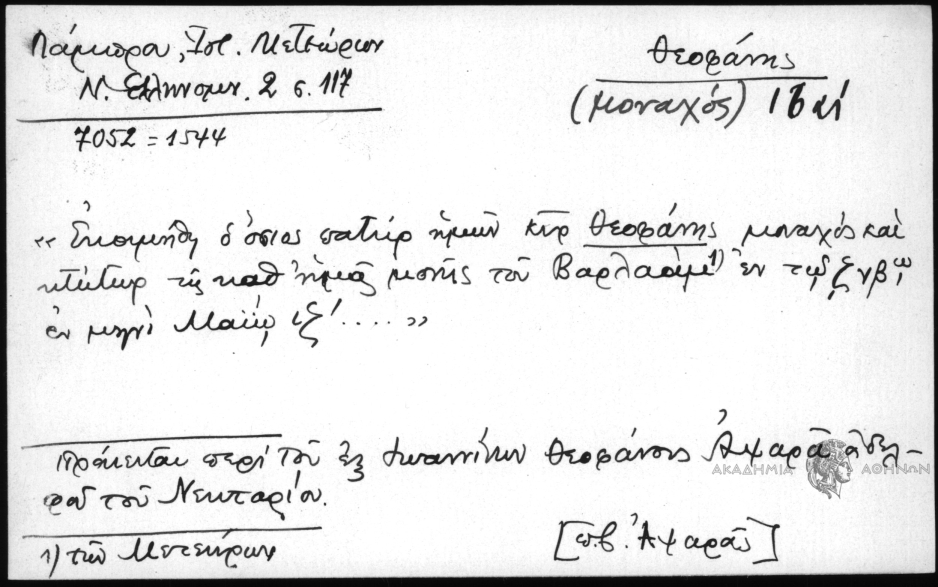 Λάμπρου, Ἱστ. Μετεώρων
Ν. Ἑλληνομν. 2 σ. 117
7052 = 1544
Θεοφάνης
(μοναχός) 16 αἰ
«Ἐκοιμήθη ὁ ὅσιος πατὴρ ἡμῶν κὺρ Θεοφάνης μοναχὸς καὶ
κτήτωρ τῆς καθ' ἡμᾶς μονῆς τοῦ Βαρλαὰμ 1) ἐν τῷ ζνβῳ
ἐν μηνὶ Μαΐῳ ιζ'....»
Πρόκειται περὶ τοῦ ἐξ Ἰωαννίνων Θεοφάνους Ἀψαρᾶ ἀδελ-
φοῦ τοῦ Νεκταρίου.
ΑΚΑΔΗΜΙΑ ΑΘΗΝΩΝ
1) τῶν Μετεώρων
[πβ. Ἀψαρᾶς]